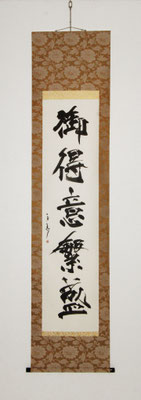 御得意繁盛